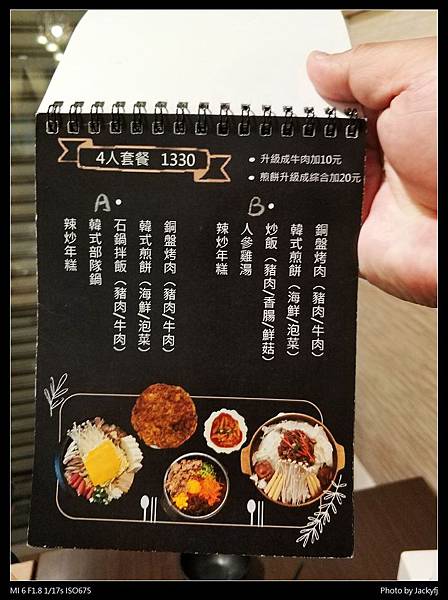 4人套餐 1330
• 升級成牛肉加10元
• 煎餅升級成綜合加20元
A •
銅盤烤肉（豬肉/牛肉）
韓式煎餅（海鮮/泡菜）
石鍋拌飯（豬肉/牛肉）
韓式部隊鍋
辣炒年糕
B •
銅盤烤肉（豬肉/牛肉）
韓式煎餅（海鮮/泡菜）
炒飯（豬肉/香腸/鮮菇）
人參雞湯
辣炒年糕
MI 6 F1.8 1/17s ISO675
Photo by Jackyfj